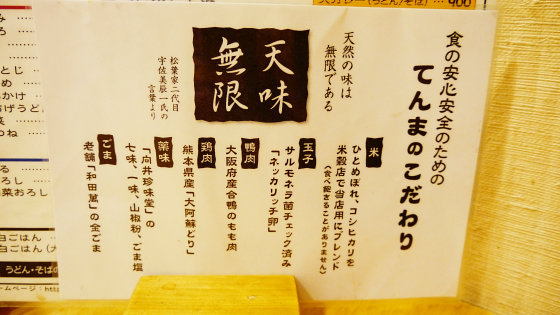 食の安心安全のための
てんまのこだわり
米
ひとめぼれ、コシヒカリを
米穀店で当店用にブレンド
（食べ飽きることがありません）
玉子
サルモネラ菌チェック済み
「ネッカリッチ卵」
鴨肉
大阪府産合鴨のもも肉
鶏肉
熊本県産「大阿蘇どり」
薬味
「向井珍味堂」の
七味、一味、山椒粉、ごま塩
ごま
老舗「和田萬」の金ごま
天然の味は
無限である
天味
無限
松葉家二代目
宇佐美辰一氏の
言葉より
とじ
白ごはん
白ごはん(大
うどん・そばの
ームページ：http
900